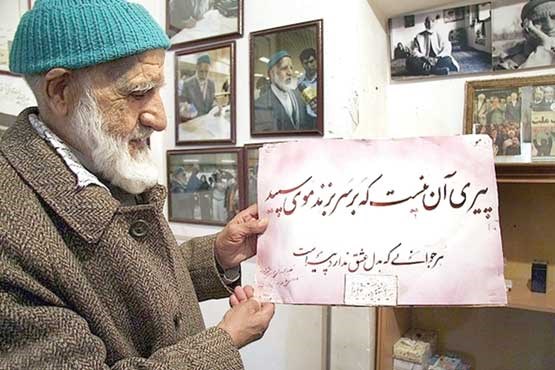 پیری آن نیست که بر سر بزند موی سپید
هر جوانی که بدل عشق ندارد پیر است